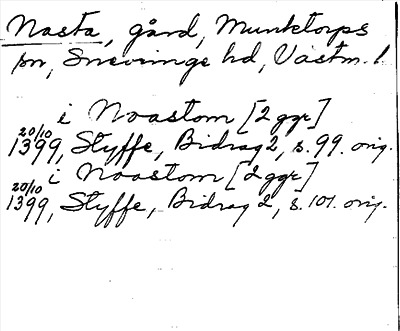 Nasta, gård, Munktorps
sn, Snevringe hd, Västm. l.
i Noastom [2 ggr]
20/10 1399, Styffe, Bidrag 2, s. 99. orig.
i Noastom [2 ggr]
20/10 1399, Styffe, Bidrag 2, s. 101. orig.